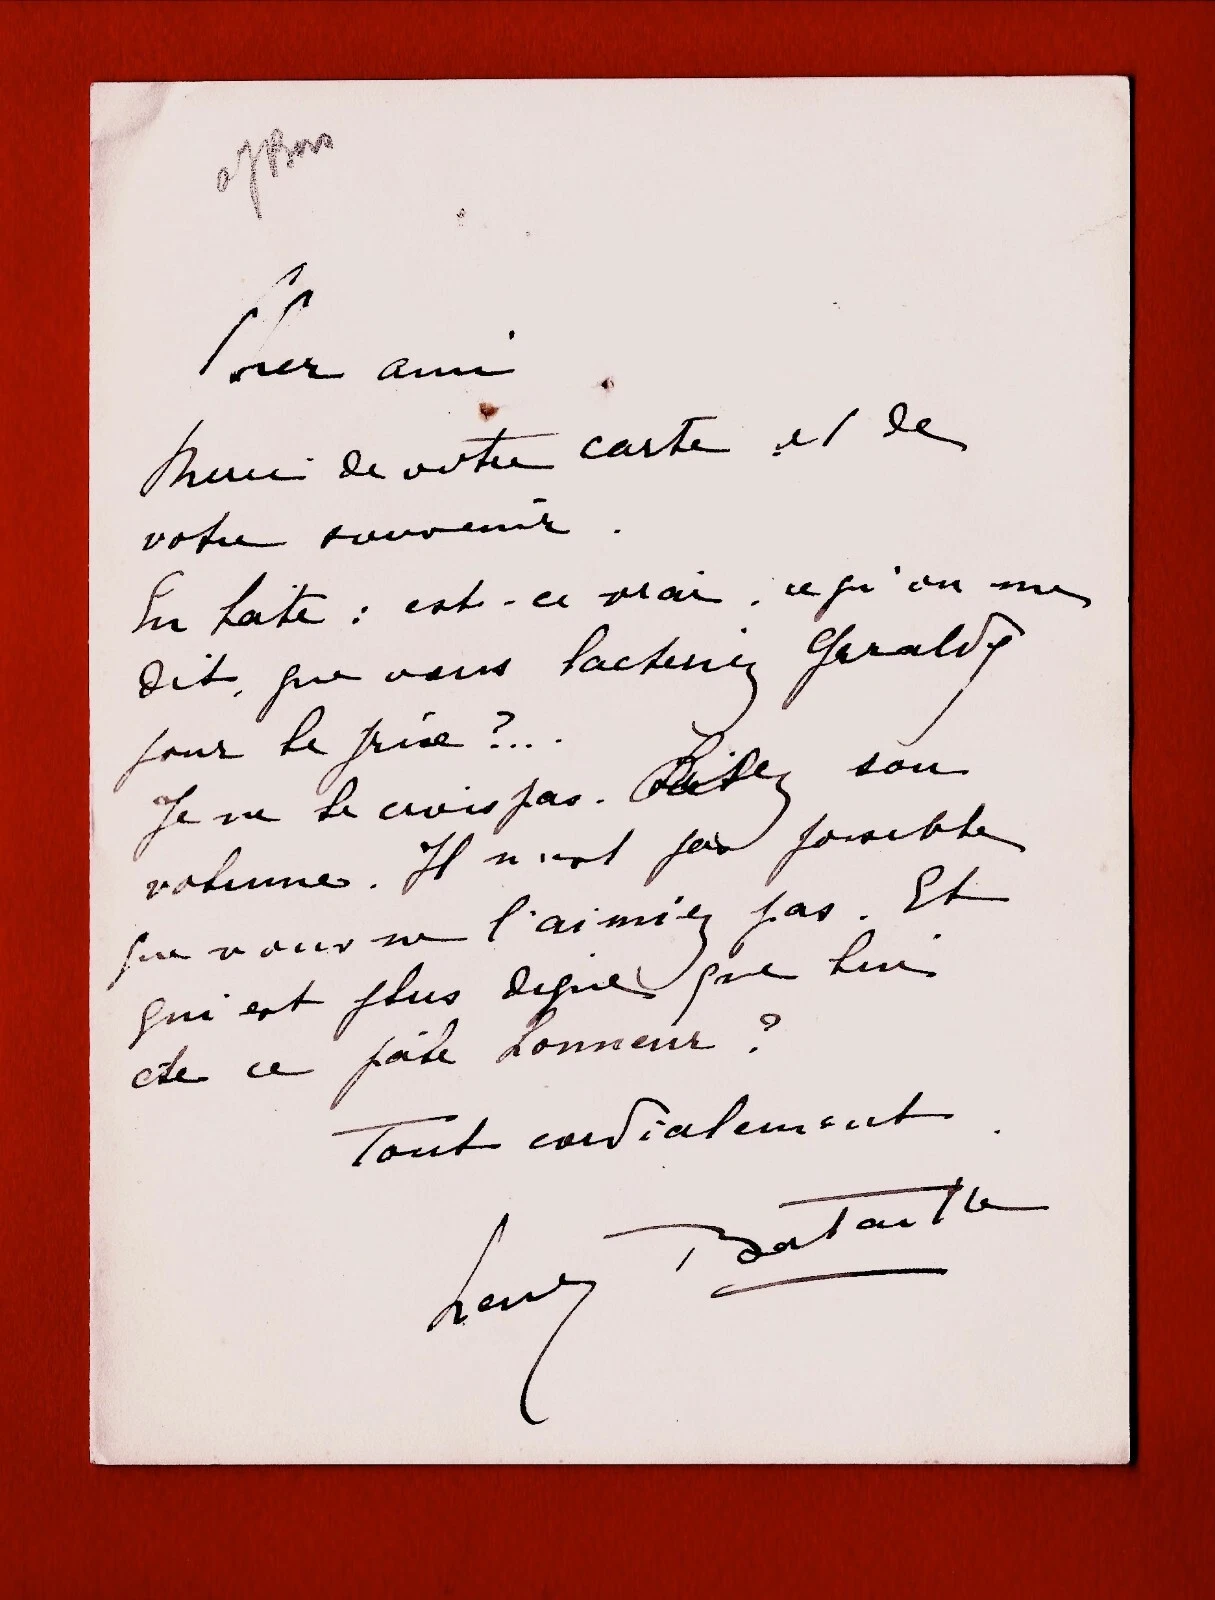 Cher ami
Merci de votre carte et de
votre souvenir.
En hâte : est-ce vrai, ce qu'on me
dit, que vous lâcheriez Géraldy
pour le prix ?...
Je ne le crois pas. Lisez son
volume. Il n'est pas possible
que vous ne l'aimiez pas. Et
qui est plus digne que lui
de ce petit honneur ?
Tout cordialement.
Henry Bataille